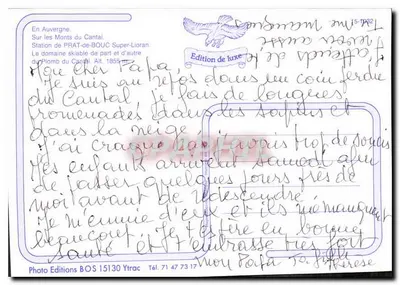 En Auvergne.
Sur les Monts du Cantal.
Station de PRAT-de-BOUC Super-Lioran
Le domaine skiable de part et d'autre
du Plomb du Cantal. Alt. 1855 m
Edition de luxe
Mon cher Papa
Je suis au repos dans un coin perdu
du Cantal, je fais de longues
promenades dans les sapins et
dans la neige
J'ai craqué, trop de soucis
Les enfants arrivent samedi afin
de passer quelques jours près de
moi avant de redescendre.
Je m'ennuie d'eux et ils me manquent
beaucoup. Je t'espère en bonne
santé et t'embrasse très fort
mon Papa Ta fille
Thérèse
Photo Editions BOS 15130 Ytrac Tél. 71 47 73 17